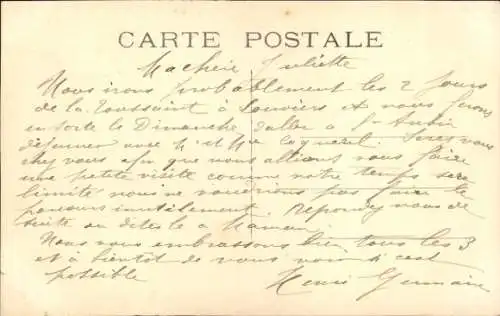 CARTE POSTALE
Ma chère Juliette
Nous irons probablement les 2 jours
de la Toussaint à Louviers et nous ferons
en sorte le Dimanche d'aller à St Aubin
déjeuner avec Mr et Mme Coquerel. Serez vous
chez vous afin que nous allions vous faire
une petite visite comme notre temps sera
limité nous ne voudrions pas faire le
parcours inutilement. Repondez nous de
suite ou dites le à Maman
Nous vous embrassons bien tous les 3
et à bientôt de vous voir si c'est
possible Henri Germaine